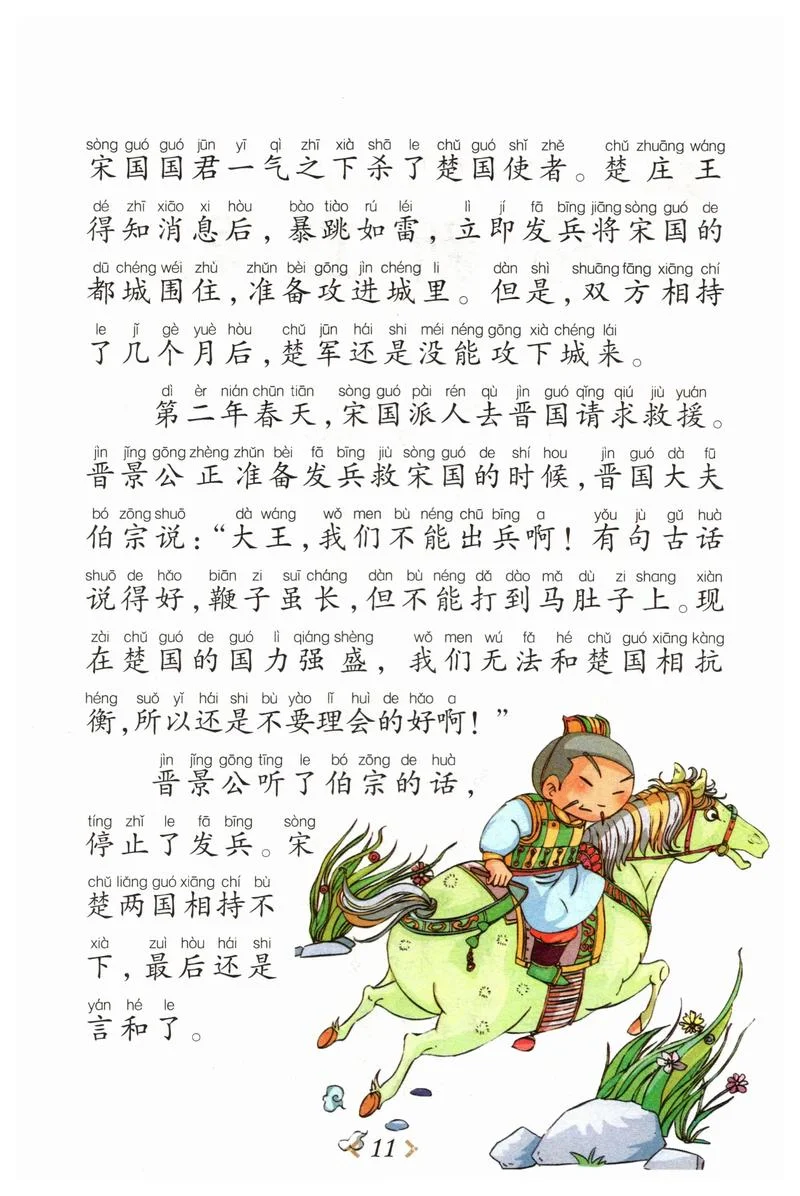 sòng guó guó jūn yī qì zhī xià shā le chǔ guó shǐ zhě chǔ zhuāng wáng
宋国国君一气之下杀了楚国使者。楚庄王
dé zhī xiāo xi hòu bào tiào rú léi lì jí fā bīng jiāng sòng guó de
得知消息后，暴跳如雷，立即发兵将宋国的
dū chéng wéi zhù zhǔn bèi gōng jìn chéng li dàn shì shuāng fāng xiāng chí
都城围住，准备攻进城里。但是，双方相持
le jǐ gè yuè hòu chǔ jūn hái shi méi néng gōng xià chéng lái
了几个月后，楚军还是没能攻下城来。
dì èr nián chūn tiān sòng guó pài rén qù jìn guó qǐng qiú jiù yuán
第二年春天，宋国派人去晋国请求救援。
jìn jǐng gōng zhèng zhǔn bèi fā bīng jiù sòng guó de shí hou jìn guó dà fū
晋景公正准备发兵救宋国的时候，晋国大夫
bó zōng shuō dà wáng wǒ men bù néng chū bīng a yǒu jù gǔ huà
伯宗说：“大王，我们不能出兵啊！有句古话
shuō de hǎo biān zi suī cháng dàn bù néng dǎ dào mǎ dù zi shang xiàn
说得好，鞭子虽长，但不能打到马肚子上。现
zài chǔ guó de guó lì qiáng shèng wǒ men wú fǎ hé chǔ guó xiāng kàng
在楚国的国力强盛，我们无法和楚国相抗
héng suǒ yǐ hái shi bù yào lǐ huì de hǎo a
衡，所以还是不要理会的好啊！”
jìn jǐng gōng tīng le bó zōng de huà
晋景公听了伯宗的话，
tíng zhǐ le fā bīng sòng
停止了发兵。宋
chǔ liǎng guó xiāng chí bù
楚两国相持不
xià zuì hòu hái shi
下，最后还是
yán hé le
言和了。
11